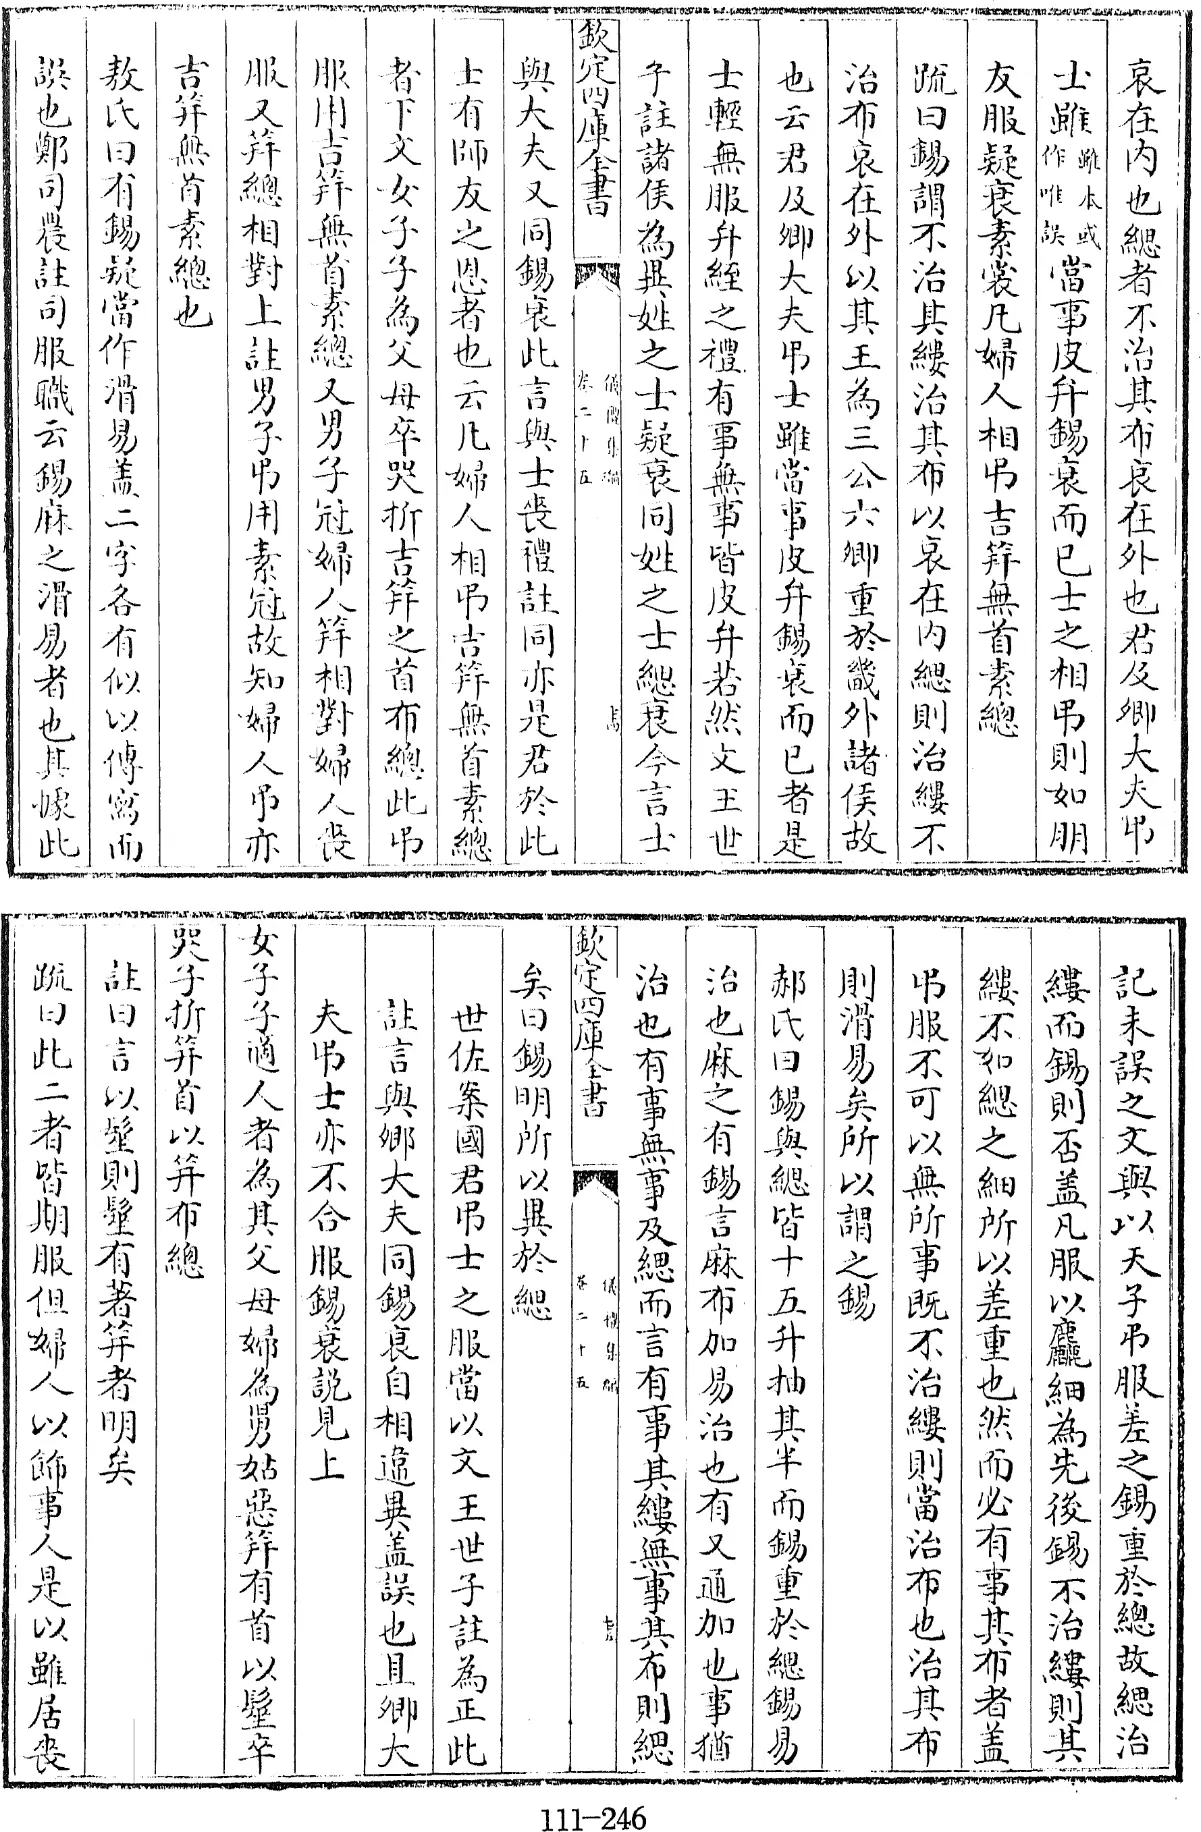 哀在内也緦者不治其布哀在外也君及卿大夫弔
士雖雖本或作唯誤當事皮弁錫衰而已士之相弔則如朋
友服疑衰素裳凡婦人相弔吉笄無首素總
疏曰錫謂不治其縷治其布以哀在内緦則治縷不
治布哀在外以其王為三公六卿重於畿外諸侯故
也云君及卿大夫弔士雖當事皮弁錫衰而已者是
士輕無服弁絰之禮有事無事皆皮弁若然文王世
子註諸侯為異姓之士疑衰同姓之士緦衰今言士
欽定四庫全書
儀禮集編
卷二十五
與大夫又同錫衰此言與士喪禮註同亦是君於此
士有師友之恩者也云凡婦人相弔吉笄無首素總
者下文女子子為父母卒哭折吉笄之首布總此弔
服用吉笄無首素總又男子冠婦人笄相對婦人喪
服又笄總相對上註男子弔用素冠故知婦人弔亦
吉笄無首素總也
敖氏曰有錫疑當作滑易盖二字各有似以傳寫而
誤也鄭司農註司服職云錫麻之滑易者也其據此
記未誤之文與以天子弔服差之錫重於緦故緦治
縷而錫則否盖凡服以麤細為先後錫不治縷則其
縷不如緦之細所以差重也然而必有事其布者盖
弔服不可以無所事既不治縷則當治布也治其布
則滑易矣所以謂之錫
郝氏曰錫與緦皆十五升抽其半而錫重於緦錫易
治也麻之有錫言麻布加易治也有又通加也事猶
治也有事無事及緦而言有事其縷無事其布則緦
欽定四庫全書
儀禮集編
卷二十五
矣曰錫明所以異於緦
世佐案國君弔士之服當以文王世子註為正此
註言與卿大夫同錫衰自相違異盖誤也且卿大
夫弔士亦不合服錫衰說見上
女子子適人者為其父母婦為舅姑惡笄有首以髽卒
哭子折笄首以笄布總
註曰言以髽則髽有著笄者明矣
疏曰此二者皆期服但婦人以飾事人是以雖居喪
111-246